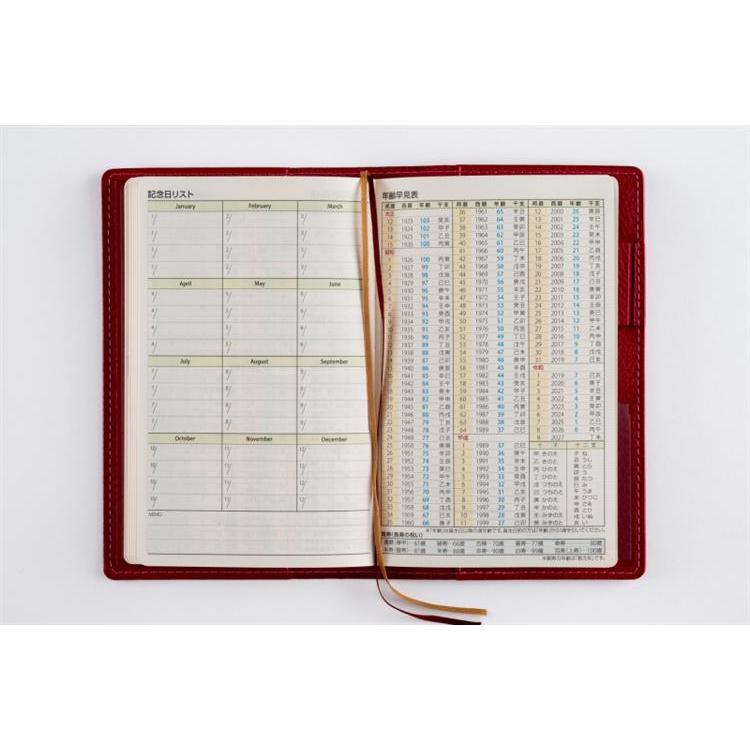 記念日リスト
January February March
1/ 2/ 3/
1/ 2/ 3/
1/ 2/ 3/
1/ 2/ 3/
April May June
4/ 5/ 6/
4/ 5/ 6/
4/ 5/ 6/
4/ 5/ 6/
July August September
7/ 8/ 9/
7/ 8/ 9/
7/ 8/ 9/
7/ 8/ 9/
October November December
10/ 11/ 12/
10/ 11/ 12/
10/ 11/ 12/
10/ 11/ 12/
MEMO
年齢早見表
邦暦 西暦 年齢 干支
大正
12 1923 103 癸亥
13 1924 102 甲子
14 1925 101 乙丑
15 1926 100 丙寅
昭和
1 1926 100 丙寅
2 1927 99 丁卯
3 1928 98 戊辰
4 1929 97 己巳
5 1930 96 庚午
6 1931 95 辛未
7 1932 94 壬申
8 1933 93 癸酉
9 1934 92 甲戌
10 1935 91 乙亥
11 1936 90 丙子
12 1937 89 丁丑
13 1938 88 戊寅
14 1939 87 己卯
15 1940 86 庚辰
16 1941 85 辛巳
17 1942 84 壬午
18 1943 83 癸未
19 1944 82 甲申
20 1945 81 乙酉
21 1946 80 丙戌
22 1947 79 丁亥
23 1948 78 戊子
24 1949 77 己丑
25 1950 76 庚寅
26 1951 75 辛卯
27 1952 74 壬辰
28 1953 73 癸巳
29 1954 72 甲午
30 1955 71 乙未
31 1956 70 丙申
32 1957 69 丁酉
33 1958 68 戊戌
34 1959 67 己亥
35 1960 66 庚子
邦暦 西暦 年齢 干支
36 1961 65 辛丑
37 1962 64 壬寅
38 1963 63 癸卯
39 1964 62 甲辰
40 1965 61 乙巳
41 1966 60 丙午
42 1967 59 丁未
43 1968 58 戊申
44 1969 57 己酉
45 1970 56 庚戌
46 1971 55 辛亥
47 1972 54 壬子
48 1973 53 癸丑
49 1974 52 甲寅
50 1975 51 乙卯
51 1976 50 丙辰
52 1977 49 丁巳
53 1978 48 戊午
54 1979 47 己未
55 1980 46 庚申
56 1981 45 辛酉
57 1982 44 壬戌
58 1983 43 癸亥
59 1984 42 甲子
60 1985 41 乙丑
61 1986 40 丙寅
62 1987 39 丁卯
63 1988 38 戊辰
64 1989 37 己巳
平成
1 1989 37 己巳
2 1990 36 庚午
3 1991 35 辛未
4 1992 34 壬申
5 1993 33 癸酉
6 1994 32 甲戌
7 1995 31 乙亥
8 1996 30 丙子
9 1997 29 丁丑
10 1998 28 戊寅
11 1999 27 己卯
邦暦 西暦 年齢 干支
12 2000 26 庚辰
13 2001 25 辛巳
14 2002 24 壬午
15 2003 23 癸未
16 2004 22 甲申
17 2005 21 乙酉
18 2006 20 丙戌
19 2007 19 丁亥
20 2008 18 戊子
21 2009 17 己丑
22 2010 16 庚寅
23 2011 15 辛卯
24 2012 14 壬辰
25 2013 13 癸巳
26 2014 12 甲午
27 2015 11 乙未
28 2016 10 丙申
29 2017 9 丁酉
30 2018 8 戊戌
31 2019 7 己亥
令和
1 2019 7 己亥
2 2020 6 庚子
3 2021 5 辛丑
4 2022 4 壬寅
5 2023 3 癸卯
6 2024 2 甲辰
7 2025 1 乙巳
8 2026 0 丙午
9 2027 丁未
十干 十二支
甲 きのえ
乙 きのと
丙 ひのえ
丁 ひのと
戊 つちのえ
己 つちのと
庚 かのえ
辛 かのと
壬 みずのえ
癸 みずのと
子 ね
丑 うし
寅 とら
卯 う
辰 たつ
巳 み
午 うま
未 ひつじ
申 さる
酉 とり
戌 いぬ
亥 い
賀寿(長寿の祝い)
還暦(華甲)…61歳 緑寿…66歳 古稀…70歳 喜寿…77歳 傘寿…80歳
半寿(盤寿)…81歳 米寿…88歳 卒寿…90歳 白寿…99歳 百寿(上寿)…100歳
※賀寿の年齢は「数え年」です。